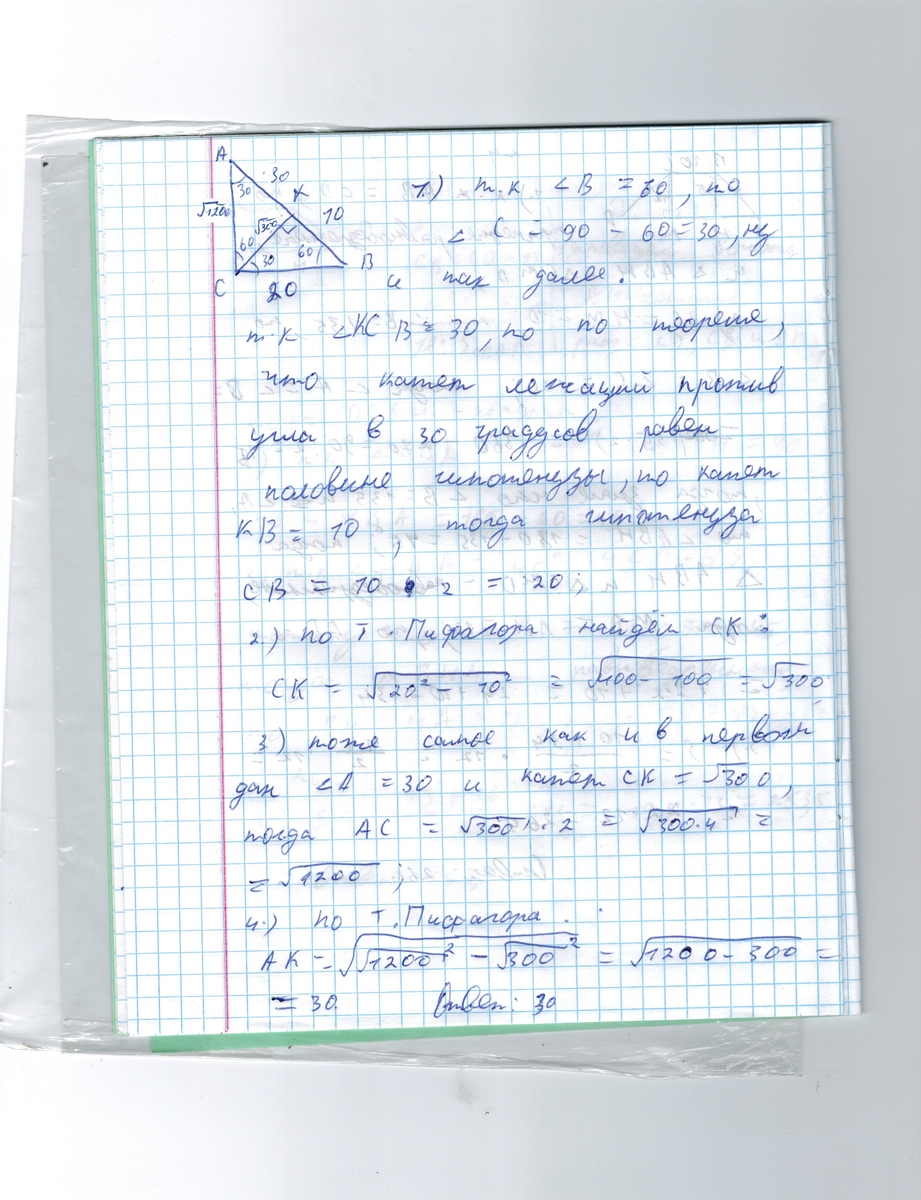 A
30
30
К
√1200
√300
10
60
30
60
B
C
20
1.) т.к ∠B = 60, то
∠C = 90 - 60 = 30, ну
и так далее.
т.к ∠КСВ = 30, то по теореме,
что катет лежащий против
угла в 30 градусов равен
половине гипотенузы, то катет
КВ = 10, тогда гипотенуза
СВ = 10 · 2 = 20;
2.) по т. Пифагора найдём СК:
СК = √20² - 10² = √400 - 100 = √300
3.) тоже самое как и в первом
дан ∠А = 30 и катет СК = √300,
тогда АС = √300 · 2 = √300·4 =
= √1200;
4.) по т. Пифагора.
АК = √√1200² - √300² = √1200 - 300 =
= 30. Ответ: 30